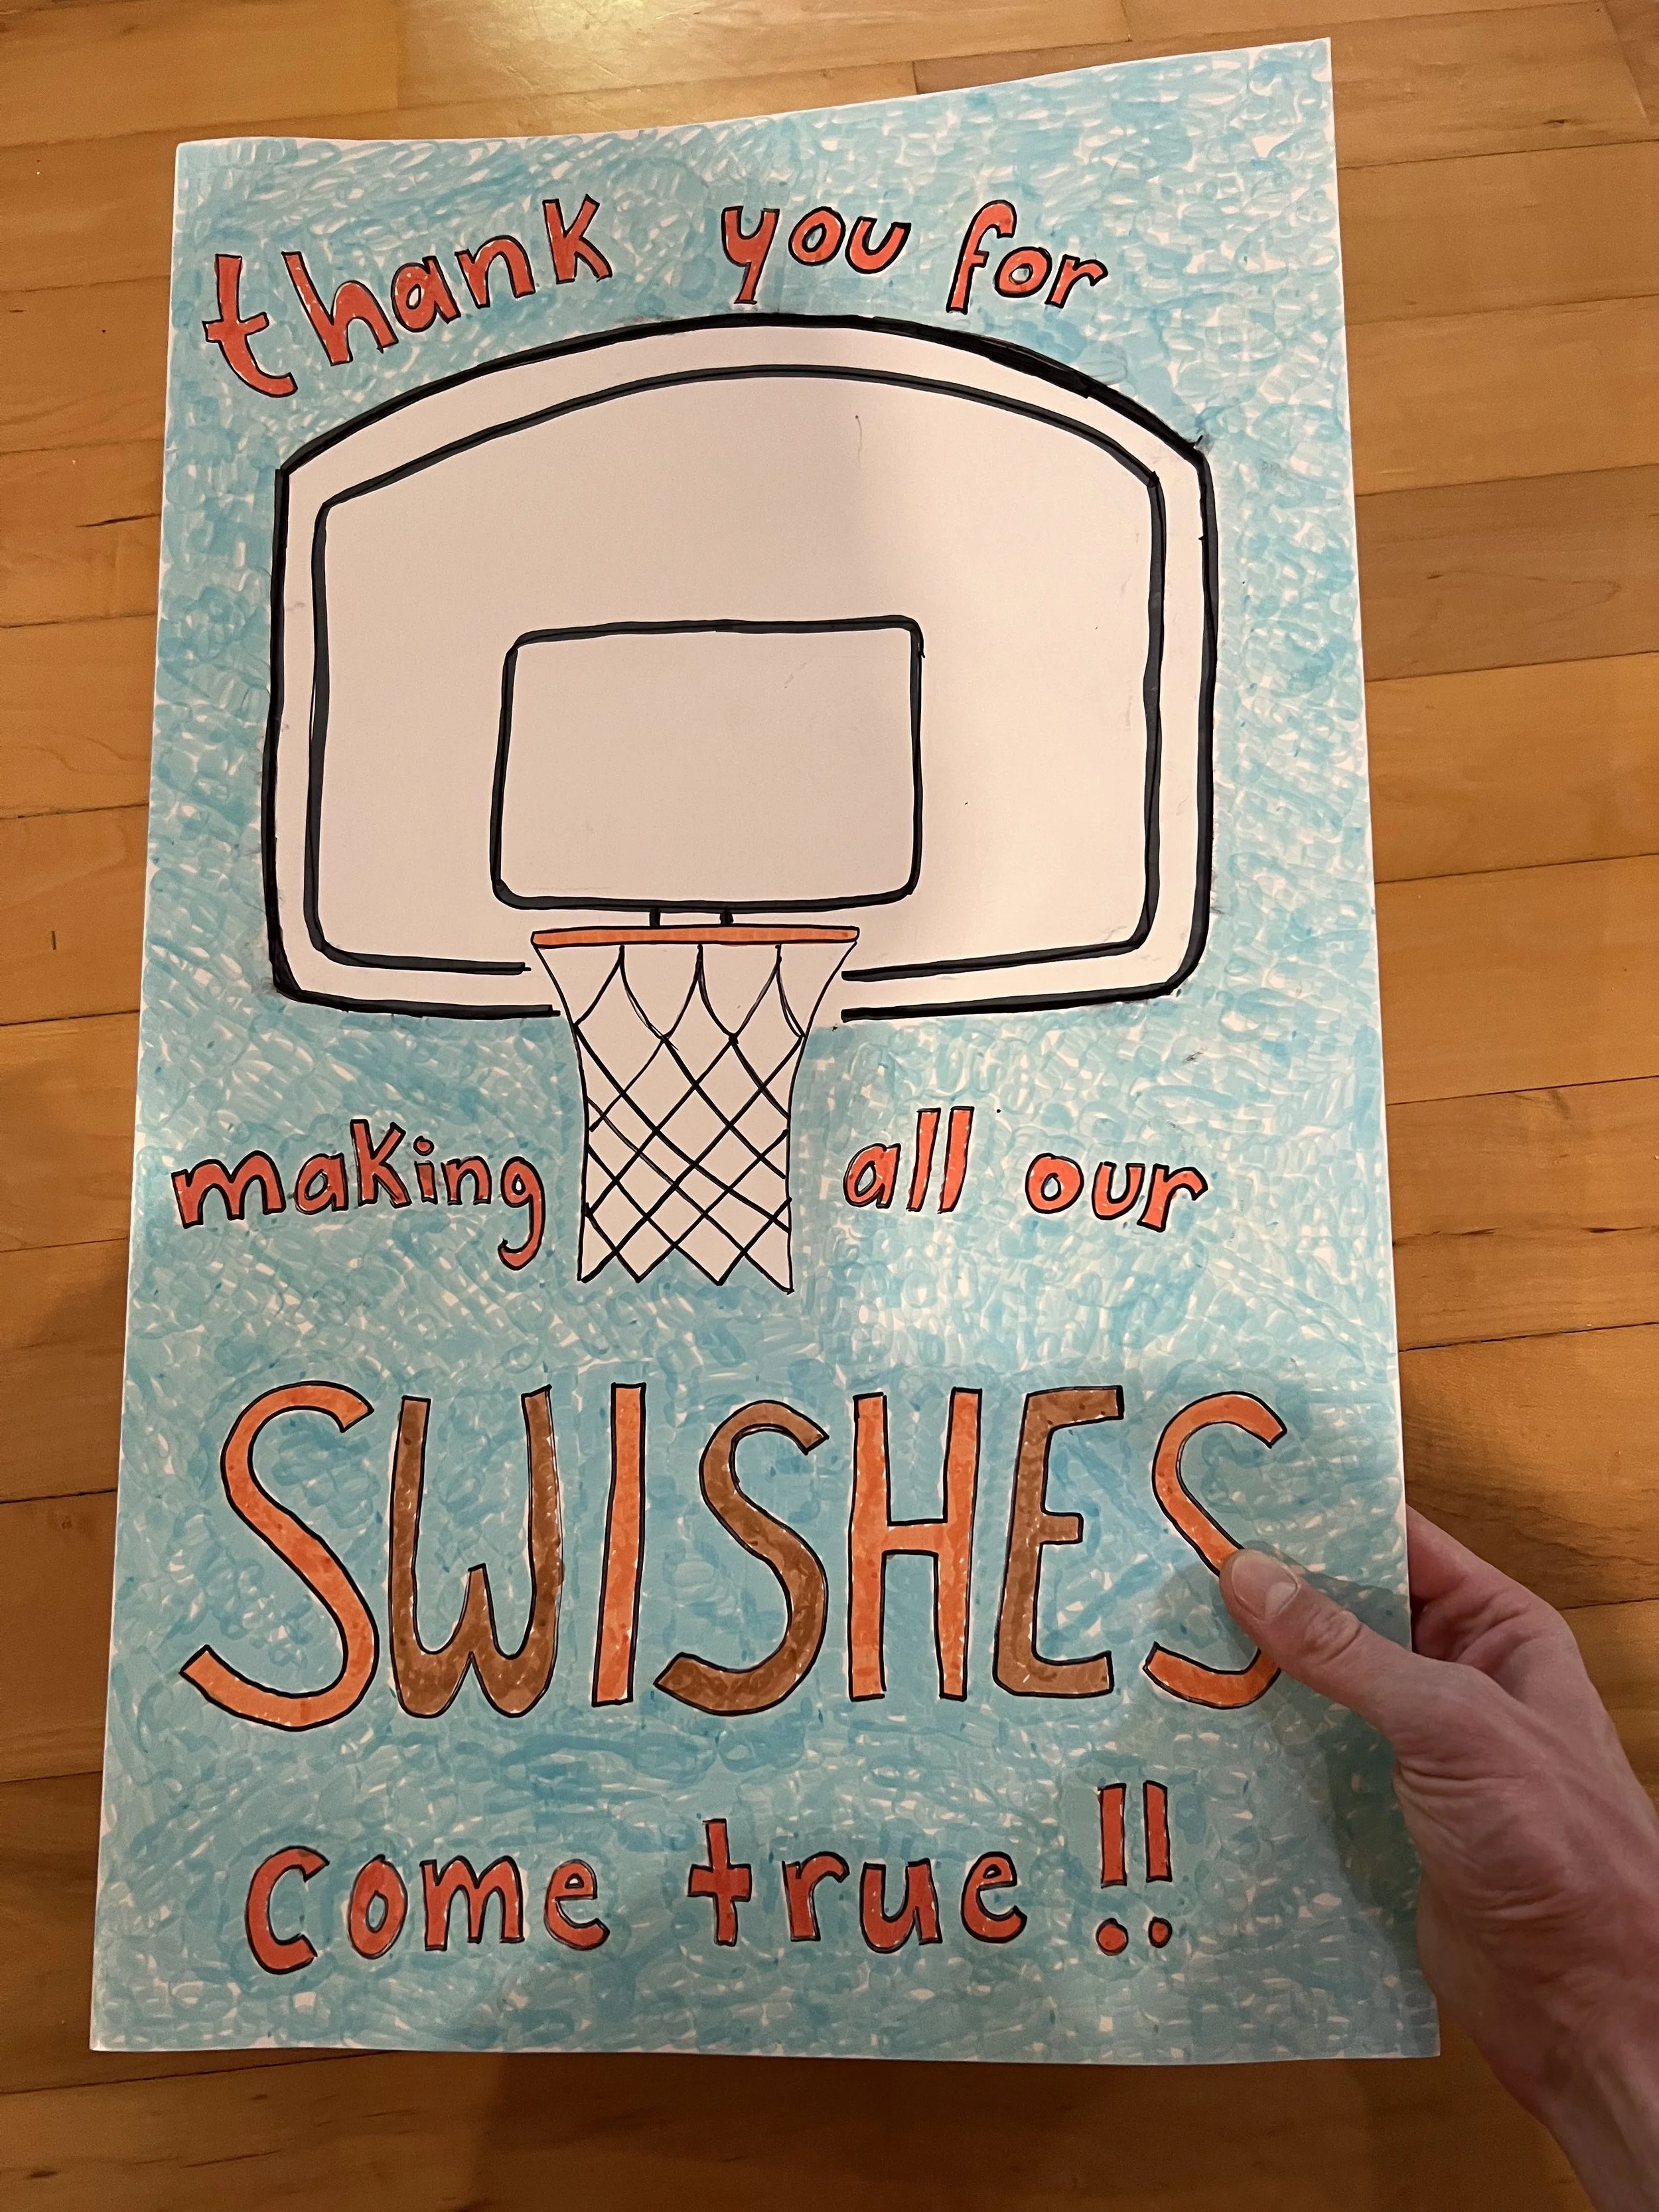 thank you for
making all our
SWISHES
come true!!